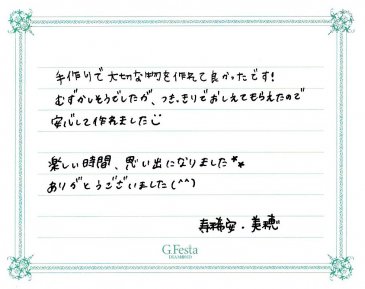 手作りで大切な物を作れて良かったです!
むずかしそうでしたが、つきっきりでおしえてもらえたので
安心して作れました
楽しい時間、思い出になりました**
ありがとうございました(^^)
寿稀安・美穂
G.Festa